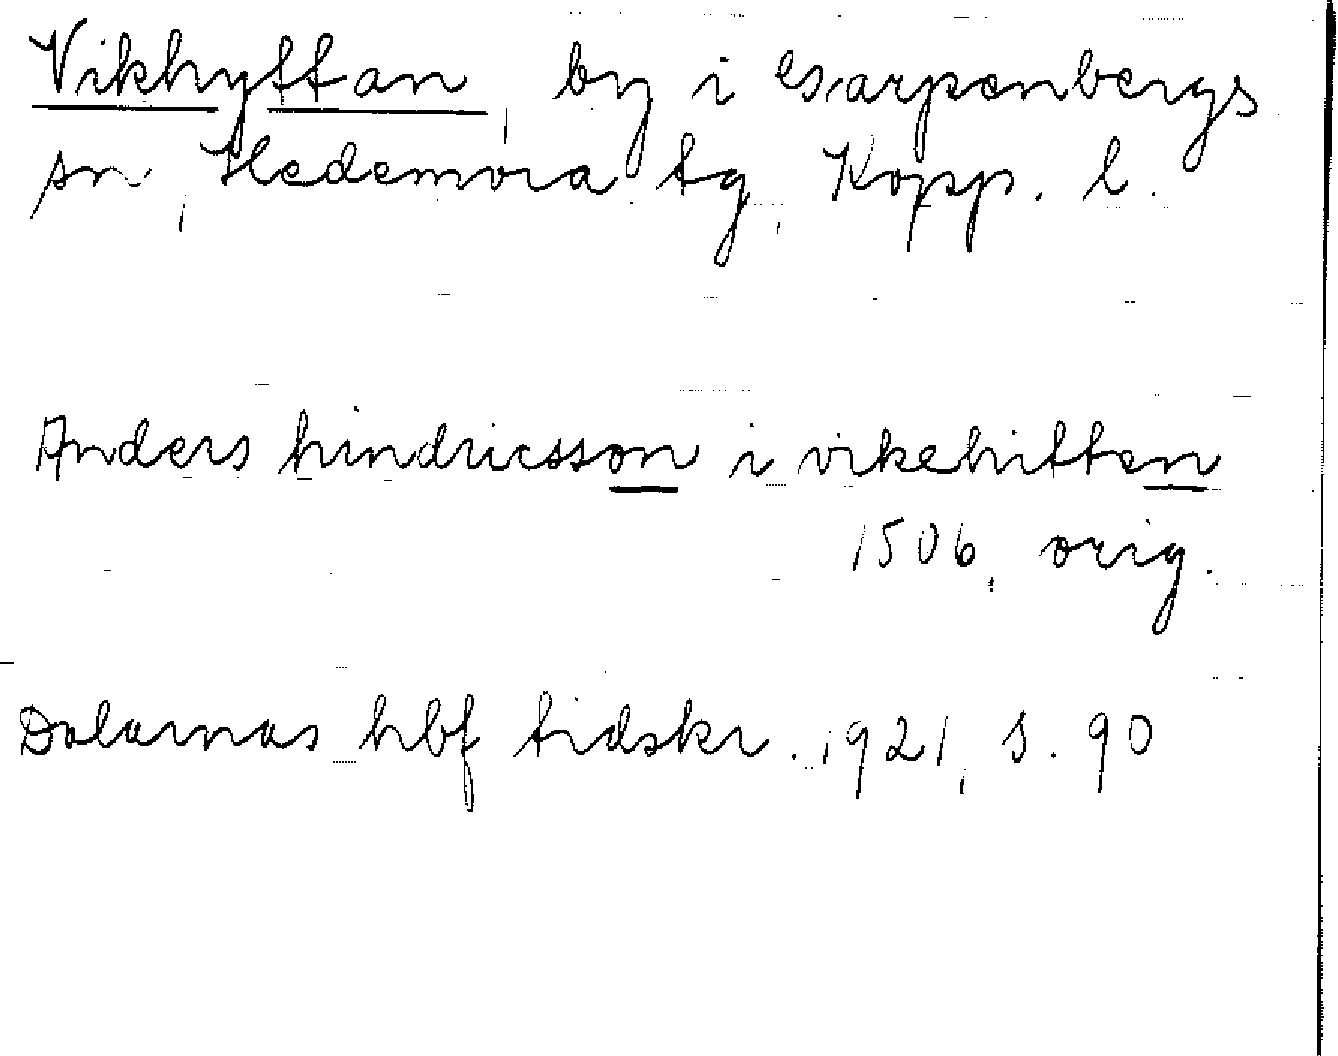 Vikhyttan, by i Garpenbergs
sn, Hedemora tg, Kopp. l.
Anders hindricsson i vikehitten
1506, orig.
Dalarnas hbf tidskr. 1921, s. 90